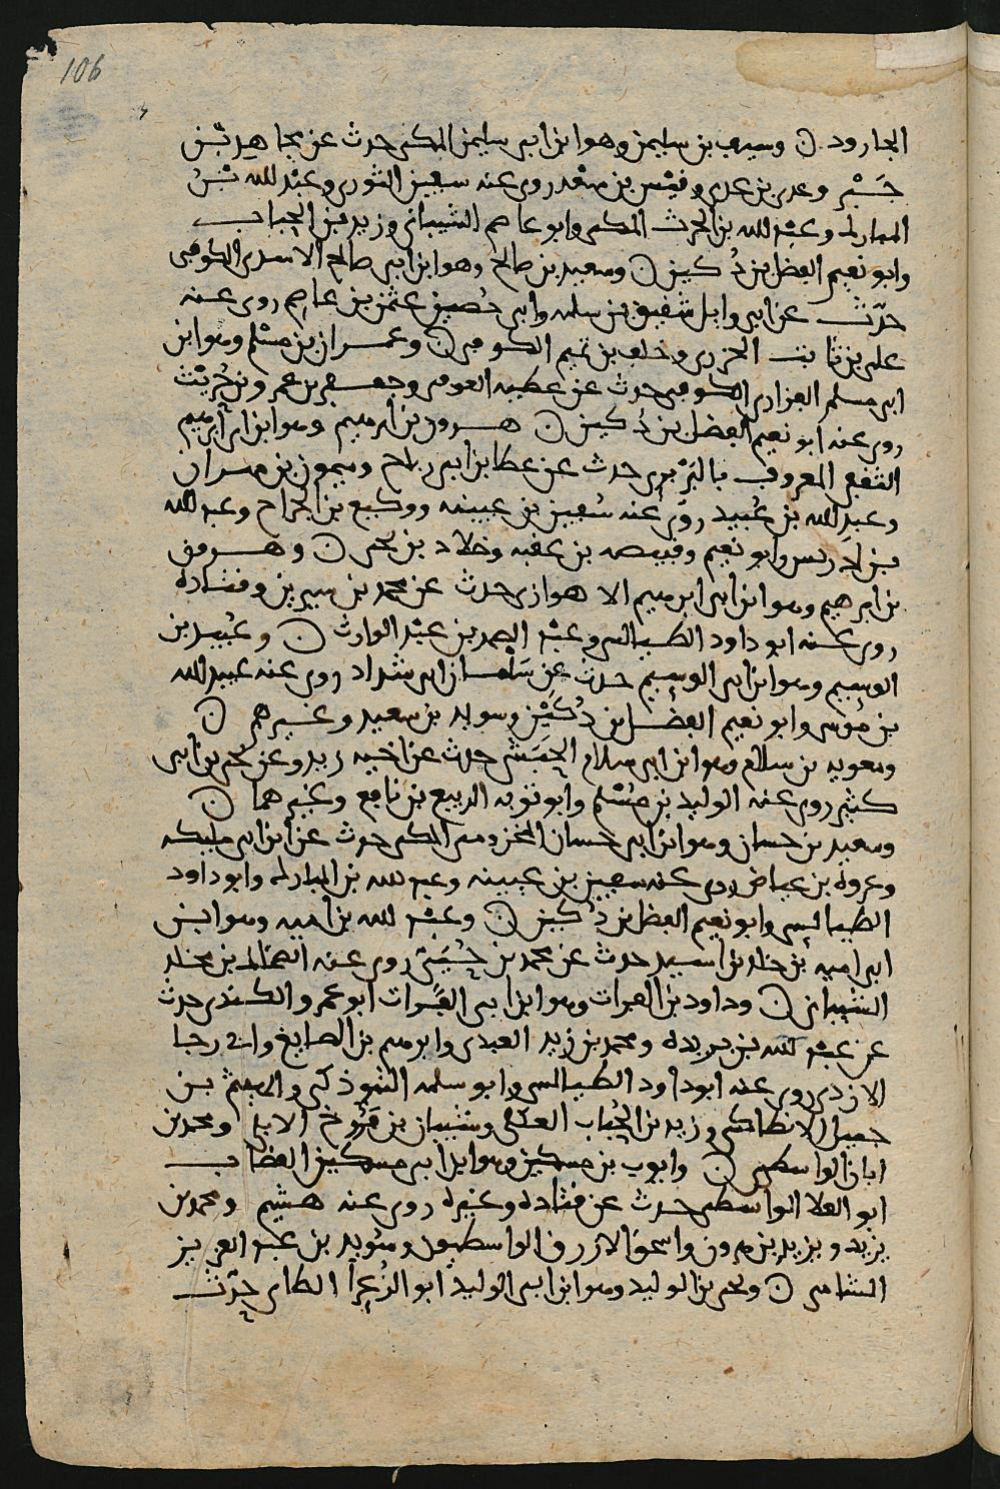 106
الجارود ن وسيف بن سليمن وهو ابن ابي سليمن المكي حدث عن مجاهد بن
جبر وعدي بن عدي وقيس بن سعد روى عنه سفين الثوري وعبد الله بن
المبارك وعبد الله بن الحرث المكي وابو عاصم الشيباني وزيد بن الحباب
وابو نعيم الفضل بن دكين ن وسعيد بن صالح وهو ابن ابي صالح الاسدي الكوفي
حدث عن ابي وايل شقيق بن سلمه وابي حصين عثمن بن عاصم روى عنه
علي بن ثابت الجزري وخلف بن تميم الكوفي ن وعمران بن مسلم وهو ابن
ابي مسلم الفزاري الكوفي حدث عن عطيه العوفي وجعفر بن عمرو بن حريث
روى عنه ابو نعيم الفضل بن دكين ن هرون بن ابرهيم وهو ابن ابي ابرهيم
الثقفي المعروف بالبربري حدث عن عطا بن ابي رباح وميمون بن مهران
وعبد الله بن عبيد روى عنه سفين بن عيينه ووكيع بن الجراح وعبد الله
بن ادريس وابو نعيم وقبيصه بن عقبه وخلاد بن يحيى ن وهرون
بن ابرهيم وهو ابن ابي ابرهيم الاهوازي حدث عن محمد بن سيرين وقتاده
روى عنه ابو داود الطيالسي وعبد الصمد بن عبد الوارث ن وعبيد بن
الوسيم وهو ابن ابي الوسيم حدث عن سلمان ابي شداد روى عنه عبيد الله
بن موسى وابو نعيم الفضل بن دكين وسويد بن سعيد وغيرهم ن
ومعويه بن سلام وهو ابن ابي سلام الحبشي حدث عن اخيه زيد وعن يحيى بن ابي
كثير روى عنه الوليد بن مسلم وابو توبه الربيع بن نافع وغيرهما ن
وسعيد بن حسان وهو ابن ابي حسان المخزومي المكي حدث عن ابن ابي مليكه
وعروة بن عياض روى عنه سفين بن عيينه وعبد الله بن المبارك وابو داود
الطيالسي وابو نعيم الفضل بن دكين ن وعبد الله بن اميه وهو ابن
ابي اميه بن خلد بن اسيد حدث عن محمد بن حيي روى عنه الضحاك بن مخلد
الشيباني ن وداود بن الفرات وهو ابن ابي الفرات ابو عمرو الكندي حدث
عن عبد الله بن بريده ومحمد بن زيد العبدي وابرهيم بن الصايغ وابي رجا
الازدي روى عنه ابو داود الطيالسي وابو سلمه التبوذكي والهيثم بن
جميل الانطاكي وزيد بن الحباب العكلي وشيبان بن فروخ الابلي ومحمد بن
ابان الواسطي ن وايوب بن مسكين وهو ابن ابي مسكين القصاب
ابو العلا الواسطي حدث عن قتاده وغيره روى عنه هشيم ومحمد بن
يزيد ويزيد بن هرون واسحق الازرق الواسطيون وسويد بن عبد العزيز
الشامي ن ويحيى بن الوليد وهو ابن ابي الوليد ابو الزعرا الطاي حدث